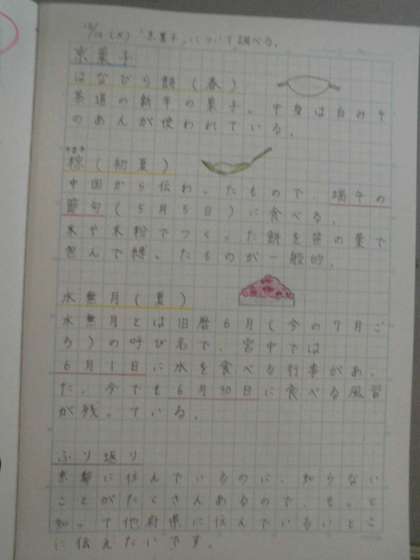 「京菓子」について調べる。
京菓子
はなびら餅(春)
茶道の新年の菓子。中身は白みそ
のあんが使われている。
ちまき
粽(初夏)
中国から伝わったもので、端午の
節句(5月5日)に食べる。
米や米粉でつくった餅を笹の葉で
包んで縛ったものが一般的。
水無月(夏)
水無月とは旧暦6月(今の7月ご
ろ)の呼び名で、宮中では
6月1日に氷を食べる行事があっ
た。今でも6月30日に食べる風習
が残っている。
ふり返り
京都に住んでいるのに、知らない
ことがたくさんあるので、もっと
知って他府県に住んでいるいとこ
に伝えたいです。